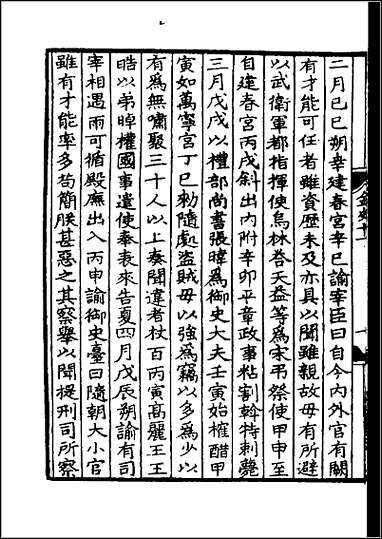 二月己巳朔幸建春宮辛巳諭宰臣曰自今內外官有闕
有才能可任者雖資歷未及亦具以聞雖親故毋有所避
以武衛軍都指揮使烏林荅天益等爲宋弔祭使甲申至
自建春宮丙戌斜出內附辛卯平章政事粘割斡特剌薨
三月戊戌以禮部尚書張暐爲御史大夫壬寅始榷醋甲
寅如萬寧宮丁巳勑隨處盜賊毋以強爲竊以多爲少以
有爲無嘯聚三十人以上奏聞違者杖百丙寅高麗王王
晧以弟晫權國事遣使奉表來告夏四月戊辰朔諭有司
宰相遇雨可循殿廡出入丙申諭御史臺曰隨朝大小官
雖有才能率多苟簡朕甚惡之其察舉以聞提刑司所察